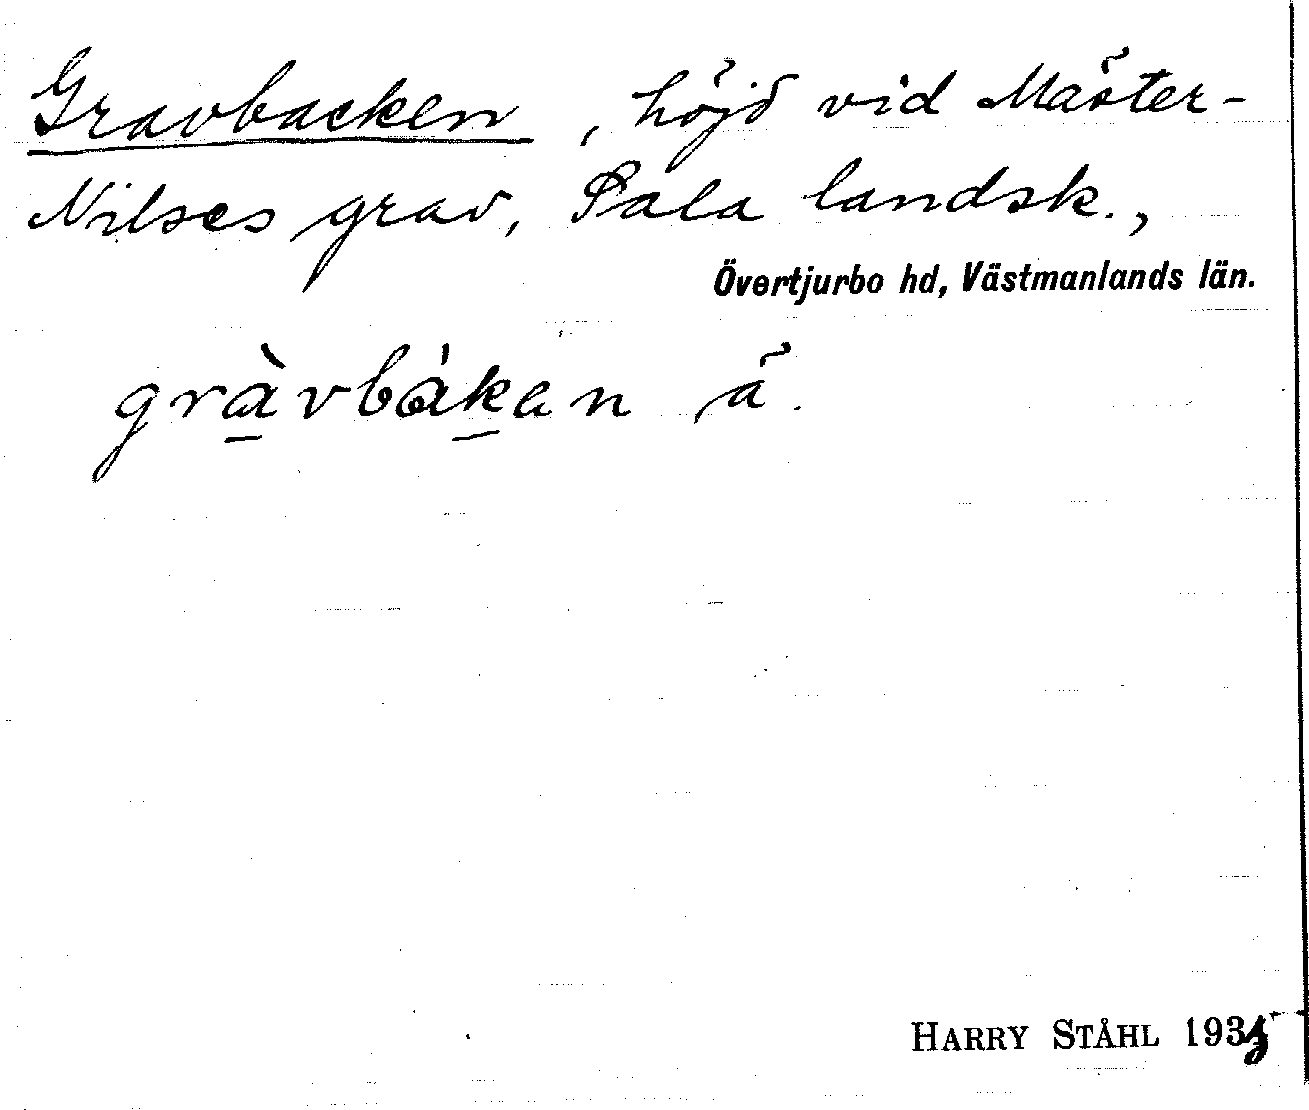 Gravbacken, höjd vid Mäster-
Nilses grav, Sala landsk.,
Övertjurbo hd, Västmanlands län.
gràvbákan ä.
HARRY STÅHL 1935